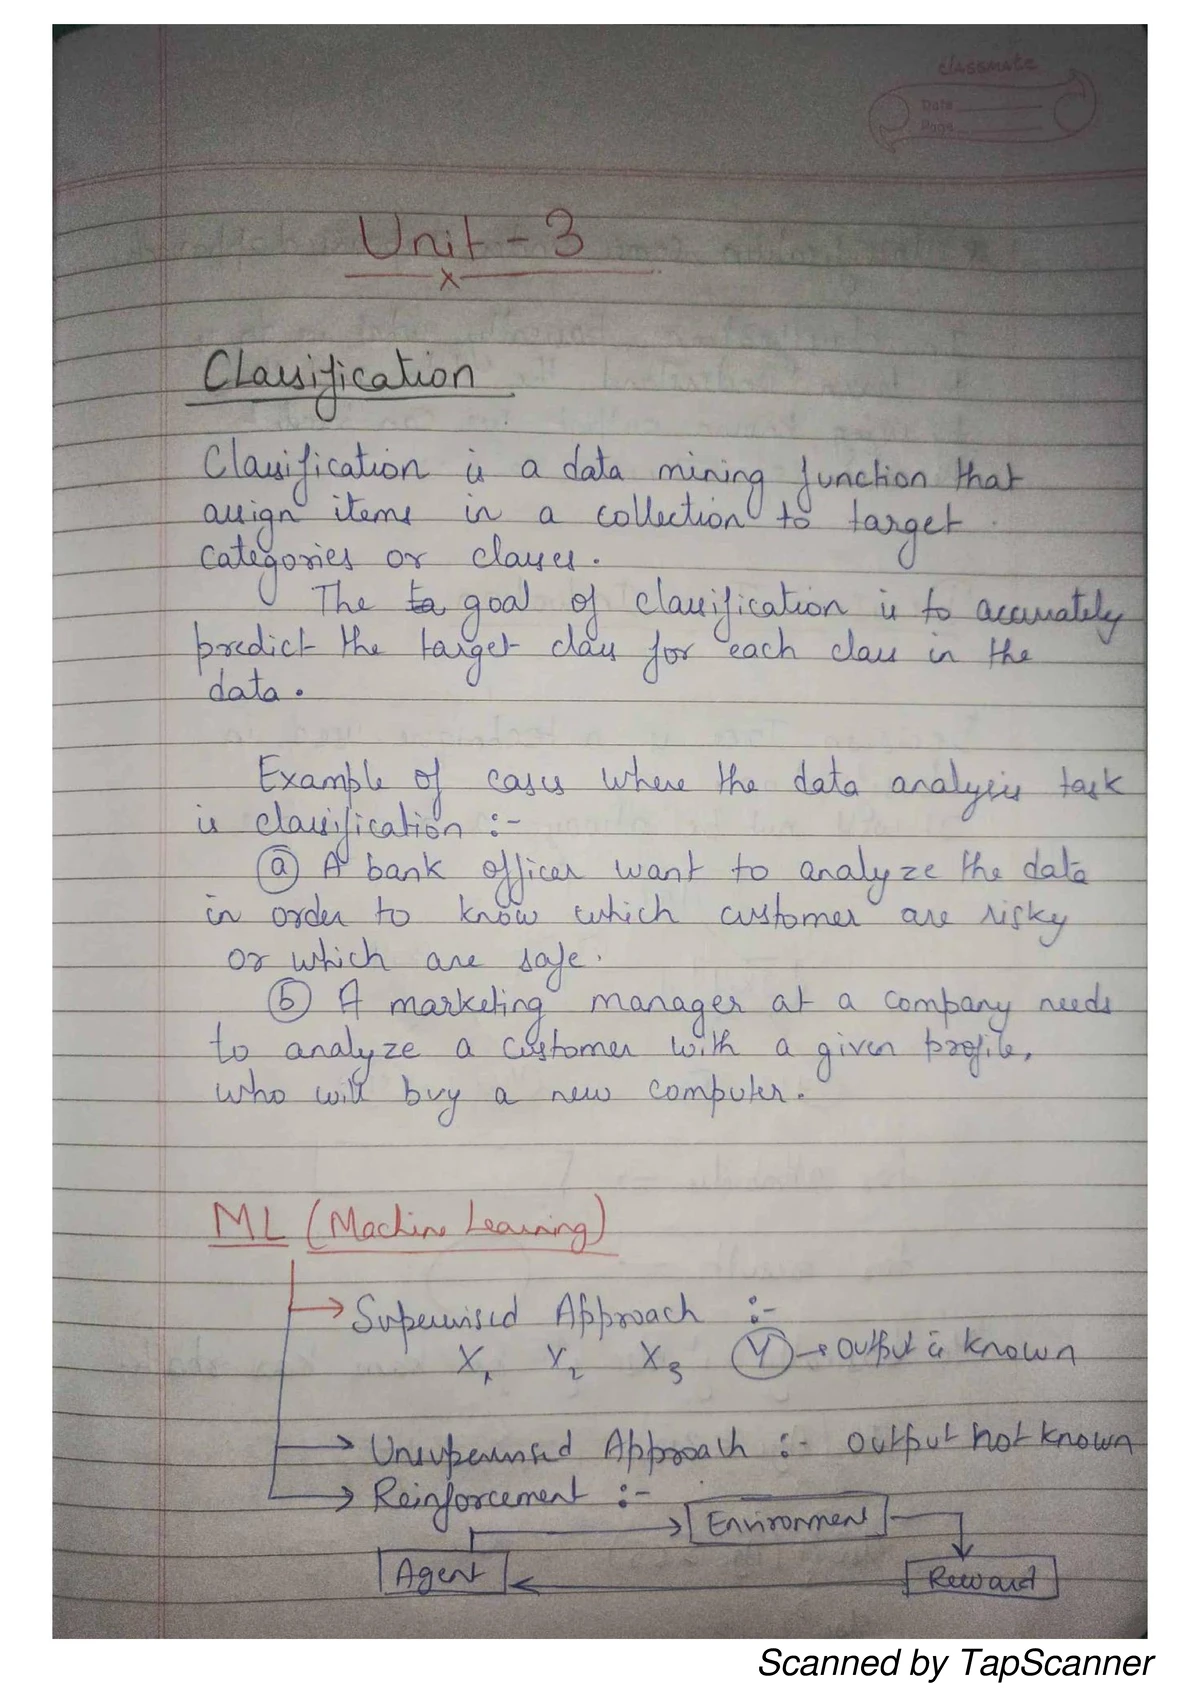 classmate
Date
Page
Unit - 3
x
Classification
Classification is a data mining function that
assign items in a collection to target
categories or classes.
The ta goal of classification is to accurately
predict the target class for each class in the
data.
Example of cases where the data analysis task
is classification :-
(a) A bank officer want to analyze the data
in order to know which customer are risky
or which are safe.
(b) A marketing manager at a company needs
to analyze a customer with a given profile,
who will buy a new computer.
ML (Machine Learning)
→ Supervised Approach :-
X1 Y2 X3 (Y) → output is known
→ Unsupervised Approach :- output not known
→ Reinforcement :-
Environment
Agent
Reward
Scanned by TapScanner